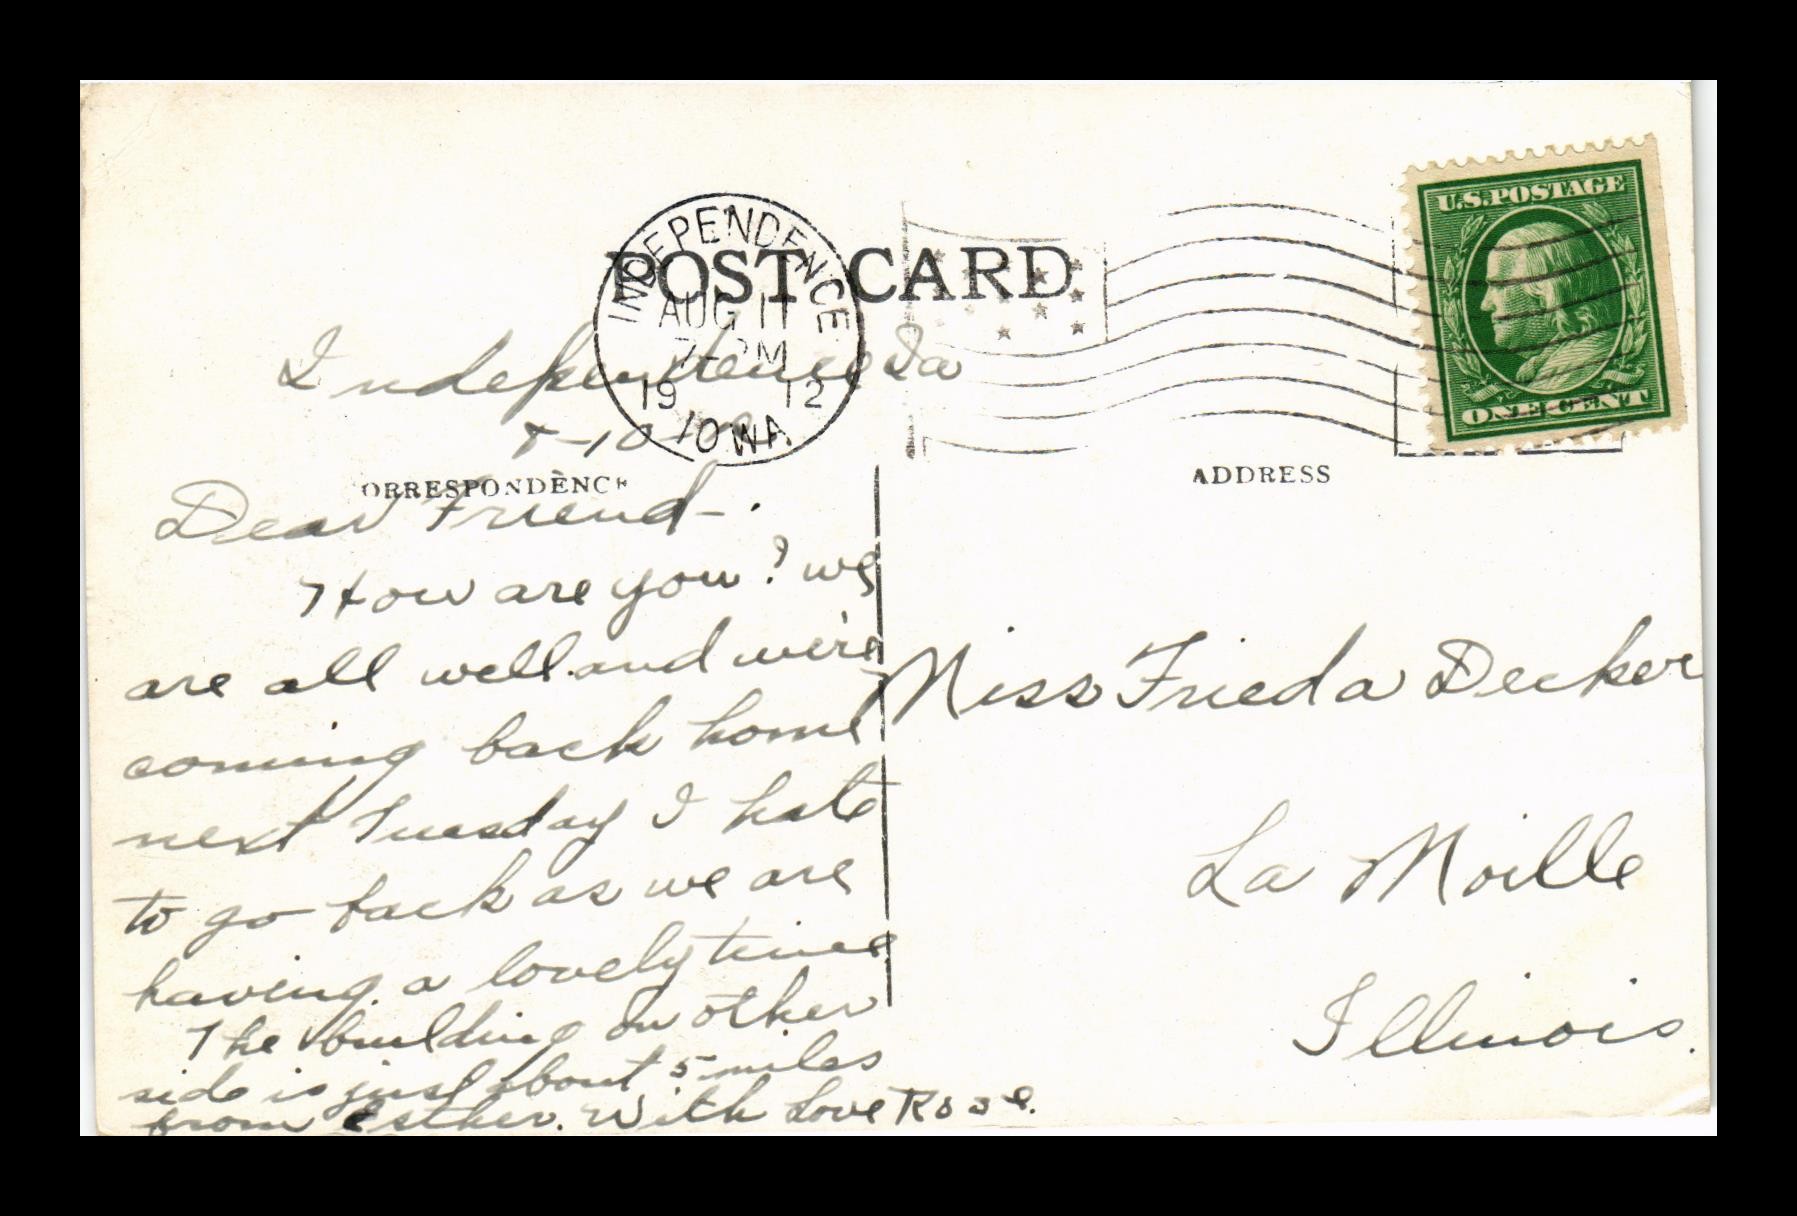 POST CARD
INDEPENDENCE
AUG 11
7- PM
19 12
IOWA
U.S.POSTAGE
ONE CENT
Independence Ia
8-10-
ORRESPONDENCE
ADDRESS
Dear Friend-.
How are you? we
are all well and we're
coming back home
next Tuesday I hate
to go back as we are
having a lovely time
The building on other
side is just about 5 miles
from Esther. With Love Rose.
Miss Frieda Decker
La Moille
Illinois.